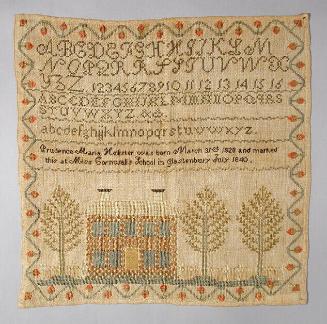 ABCDEFGHIJKLM
NOPQRRSTUVWXX
YBZ. 12345678910 11 12 13 14 15 16
ABCDEFGHIJKLMNOPQRS
STUVWXYZ. &c.
abcdefghijklmnopqrstuvwxyz.
Prudence Maria was born March 31st 1828 and marked
this at Miss Cornwall's School in Glastenbury July 1840.